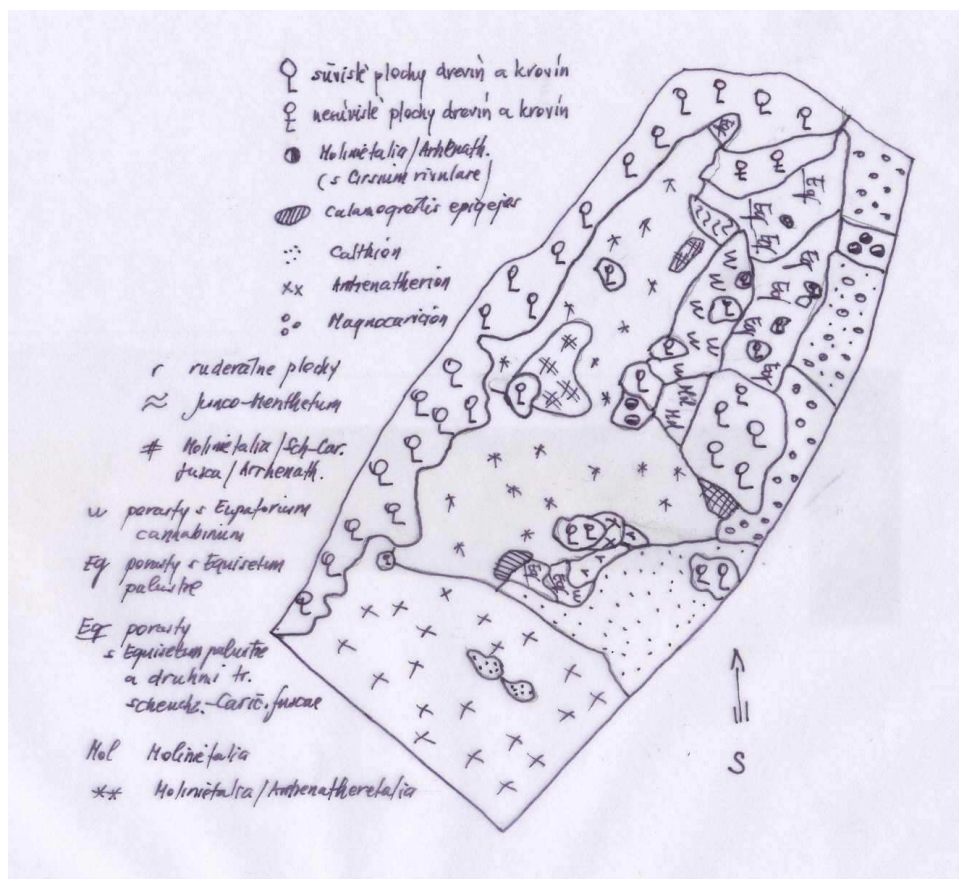 súvislé plochy drevín a krovín
nesúvislé plochy drevín a krovín
Molinietalia/Arrhenath.
(s Cirsium rivulare)
Calamogrostis epigejos
Calthion
Arrenatherion
Magnocaricion
r ruderálne plochy
≈ Junco-Menthetum
# Molinietalia/Sch-Car.
fusca/Arrhenath.
w porasty s Eupatorium
cannabinum
Eq porasty s Equisetum
palustre
Eq porasty
s Equisetum palustre
a druhmi tr.
scheuchz.-Caric. fuscae
Mol Molinietalia
** Molinietalia/Arrenatheretalia
Eq
Eq
Eq
Eq
Eq
Eq
Eq
Mol
Mol
Eq
Eq
S